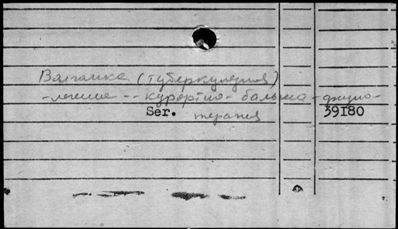 (туберкулезная)
-лечение -- курортно- бальнео- физио-
Ser. терапия 39I80